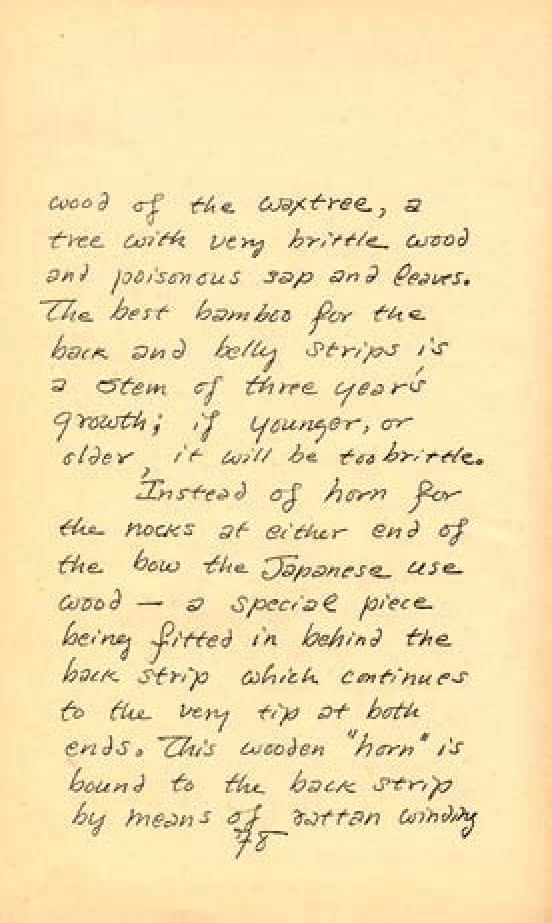 wood of the waxtree, a
tree with very brittle wood
and poisonous sap and leaves.
The best bamboo for the
back and belly strips is
a stem of three year's
growth; if younger, or
older, it will be too brittle.
Instead of horn for
the nocks at either end of
the bow the Japanese use
wood — a special piece
being fitted in behind the
back strip which continues
to the very tip at both
ends. This wooden "horn" is
bound to the back strip
by means of rattan winding
78